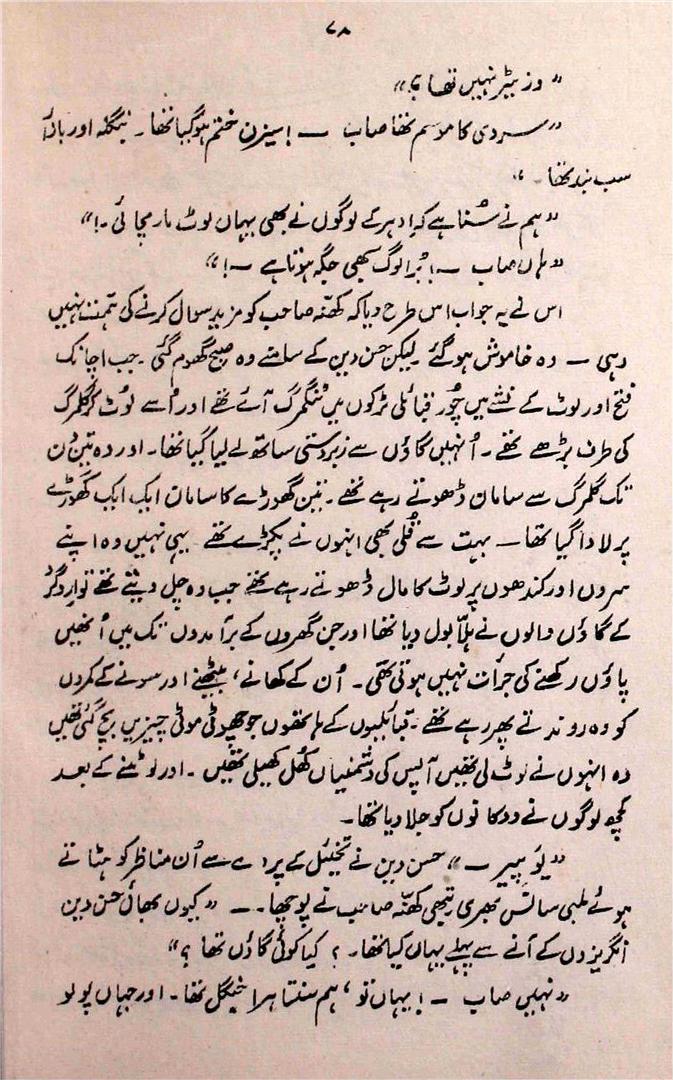 ۷۸
”وزیٹر نہیں تھا؟“
”سردی کا موسم تھا صاب —! سیزن ختم ہو گیا تھا۔ بنگلہ اور بازار
سب بند تھا۔“
”ہم نے سُنا ہے کہ اِدہر کے لوگوں نے بھی یہاں لوٹ مار مچائی۔!“
”ہاں صاب —! بُرا لوگ سبھی جگہ ہوتا ہے —!“
اس نے یہ جواب اس طرح دیا کہ کھنّہ صاحب کو مزید سوال کرنے کی ہمّت نہیں
رہی — وہ خاموش ہو گئے لیکن حسن دین کے سامنے وہ صبح گھوم گئی۔ جب اچانک
فتح اور لوٹ کے نشے میں چُور قبائلی ٹرکوں میں ٹنگمرگ آئے تھے اور اُسے لوٹ کر گلمرگ
کی طرف بڑھے تھے۔ اُنہیں گاؤں سے زبردستی ساتھ لے لیا گیا تھا۔ اور وہ تین دن
تک گلمرگ سے سامان ڈھوتے رہے تھے۔ تین گھوڑے کا سامان ایک ایک گھوڑے
پر لادا گیا تھا — بہت سے قُلی بھی انہوں نے پکڑے تھے یہی نہیں وہ اپنے
سروں اور کندھوں پر لوٹ کا مال ڈھوتے رہے تھے جب وہ چل دیئے تھے تو ارد گرد
کے گاؤں والوں نے ہلّا بول دیا تھا اور جن گھروں کے برآمدوں تک میں اُنھیں
پاؤں رکھنے کی جرأت نہیں ہوتی تھی۔ اُن کے کھانے، بیٹھنے اور سونے کے کمروں
کو وہ روندتے پھر رہے تھے۔ قبائلیوں کے ہاتھوں جو چھوٹی موٹی چیزیں بچ گئی تھیں
وہ انہوں نے لوٹ لی تھیں آپس کی دشمنیاں کھُل کھیلی تھیں۔ اور لوٹنے کے بعد
کچھ لوگوں نے دوکانوں کو جلا دیا تھا۔
حسن دین نے تخیّل کے پردے سے اُن مناظر کو ہٹاتے
ہوئے لمبی سانس بھری تبھی کھنّہ صاحب نے پوچھا۔ — ”کیوں بھائی حسن دین
انگریزوں کے آنے سے پہلے یہاں کیا تھا۔ ؟ کیا کوئی گاؤں تھا؟“
”نہیں صاب —! یہاں تو، ہم سنتا ہرا جنگل تھا۔ اور جہاں پولو